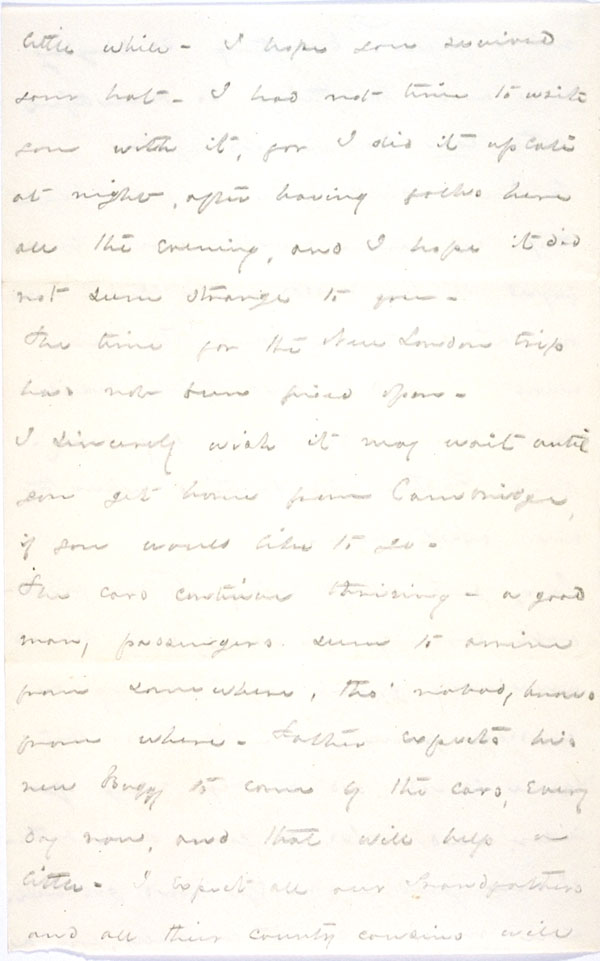 little while - I hope you received
your hat - I had not time to write
you with it, for I did it up late
at night, after having folks here
all the evening, and I hope it did
not seem strange to you -
The time for the New London trip
has not been fixed upon -
I sincerely wish it may wait until
you get home from Cambridge,
if you would like to go -
The cars continue thriving - a good
many passengers seem to arrive
from somewhere, tho' nobody knows
from where - Father expects his
new Buggy to come by the cars, every
day now, and that will help a
little - I expect all our Grandfathers
and all their country cousins will